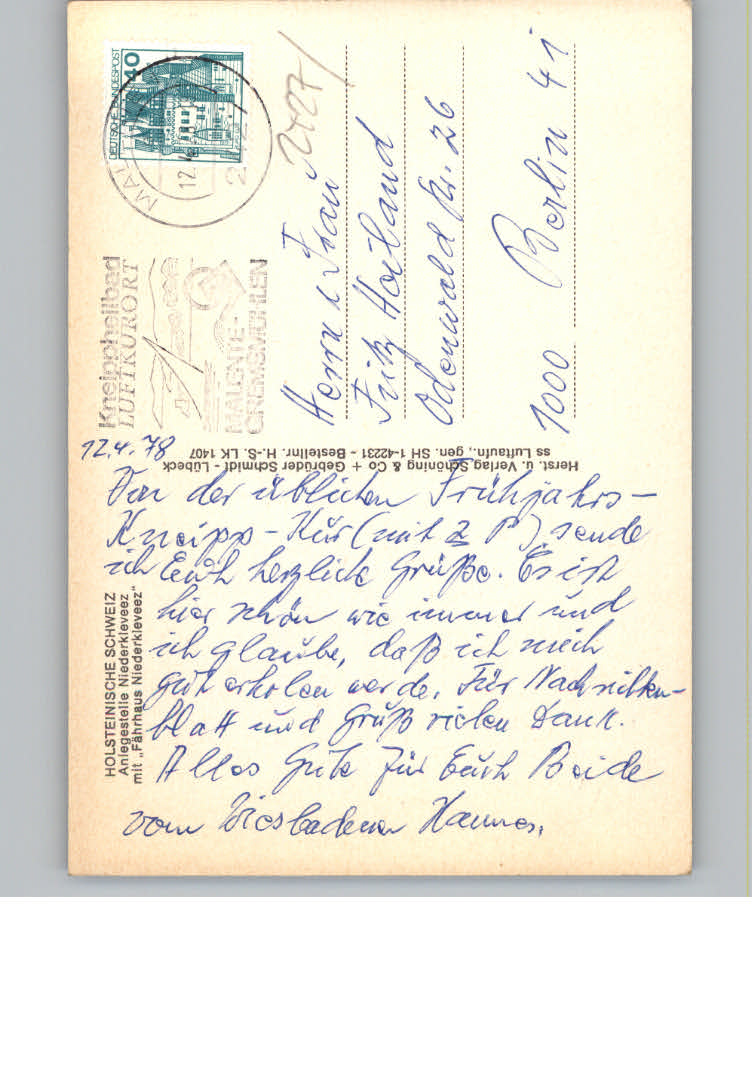 12.4.78
Von der üblichen Frühjahrs-
Kneipp-Kur (mit 2 P), sende
ich Euch herzliche Grüße. Es ist
hier schön wie immer und
ich glaube, daß ich mich
gut erholen werde. Für Nachrichten-
blatt und Gruß vielen Dank.
Alles Gute für Euch Beide
vom Wiesbadener Hannes.
HOLSTEINISCHE SCHWEIZ
Anlegestelle Niederkleveez
mit „Fährhaus Niederkleveez"
Herst. u. Verlag Schöning & Co + Gebrüder Schmidt - Lübeck
ss Luftaufn., gen. SH 1-42231 - Bestellnr. H.-S. LK 1407
Kneippheilbad
LUFTKURORT
MALENTE-
GREMSMÜHLEN
DEUTSCHE BUNDESPOST
40
MAL
12.4
2
2427/
Herrn u Frau
Fritz Heiland
Odenwald str. 26
1000 Berlin 41